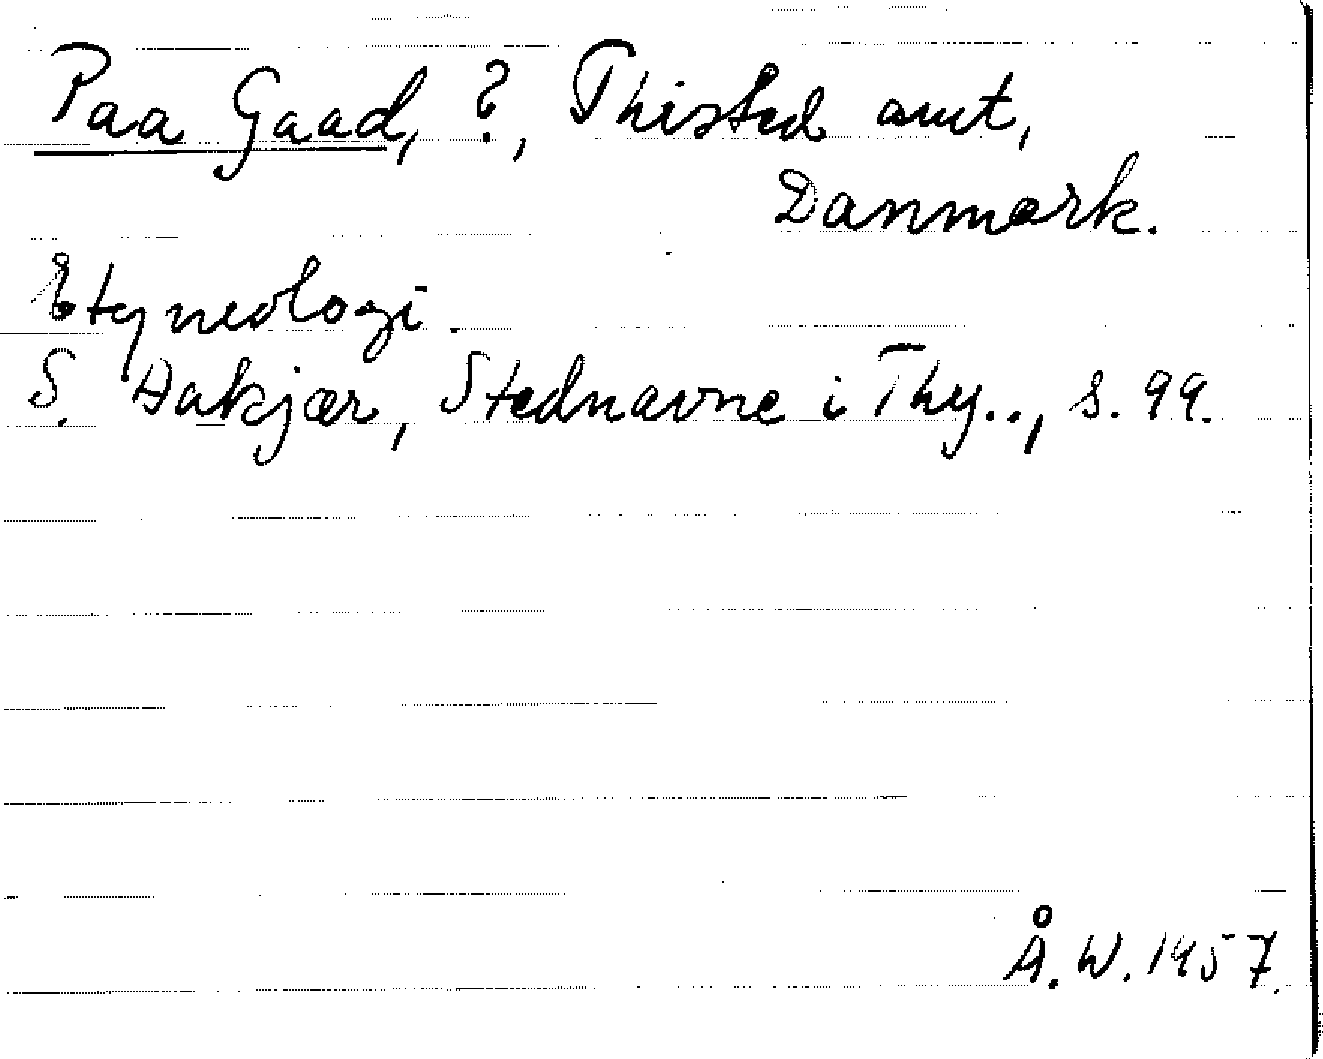 Paa Gaad, ?, Thisted amt,
Danmark.
Etymologi.
S. Aakjær, Stednavne i Thy.., s. 99.
Å. W. 1957.